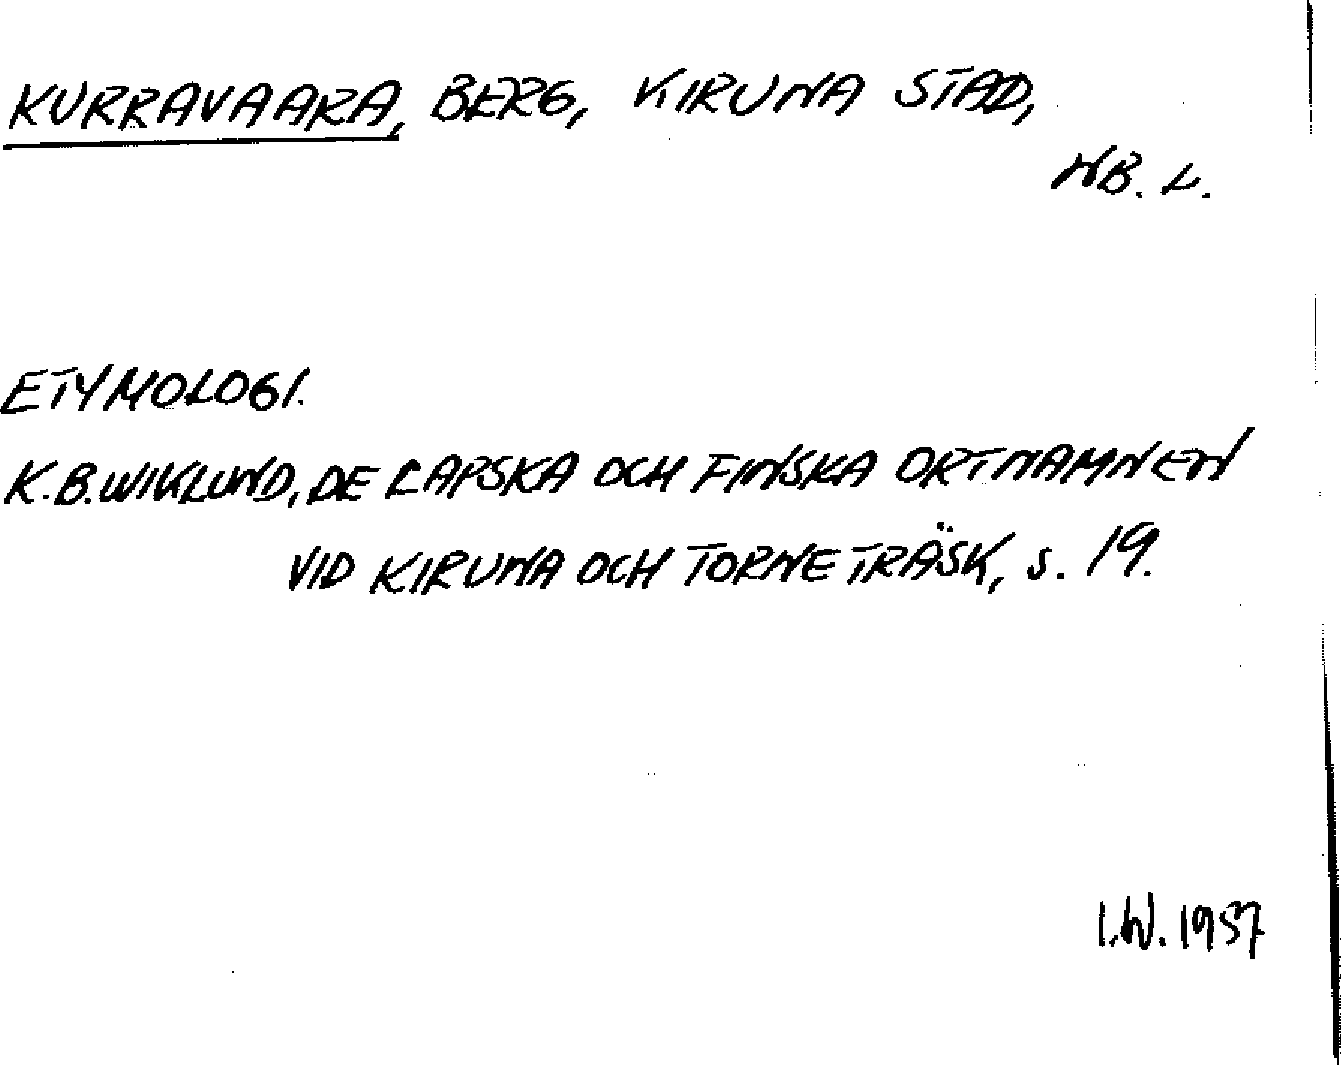 KURRAVAARA, BERG, KIRUNA STAD,
NB. L.
ETYMOLOGI.
K.B.WIKLUND, DE LAPSKA OCH FINSKA ORTNAMNEN
VID KIRUNA OCH TORNETRÄSK, s. 19.
I.W. 1957